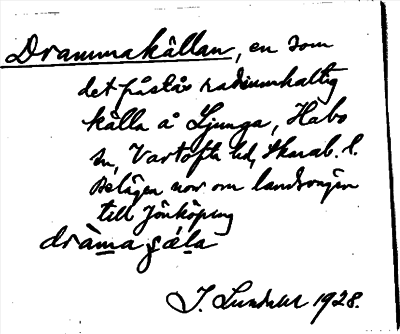 Drammakällan, en som
det påstås radiumhaltig
källa å Ljunga, Habo
sn, Vartofta hd, Skarab. l.
Belägen norr om landsvägen
till Jönköping
dràma çæ̀la
J. Lundahl 1928.